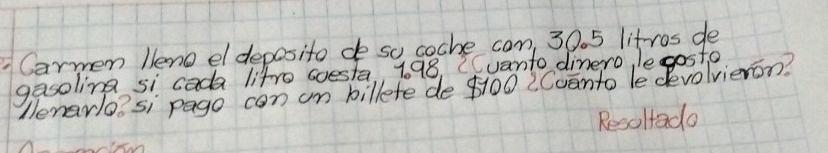 Carmen lleno el deposito de su coche con 30.5 litros de
gasolina si cada litro cuesta 1.98 ¿Cuanto dinero le costo
llenarlo? si pago con un billete de $100 ¿Cuánto le devolvierón?
Resoltado